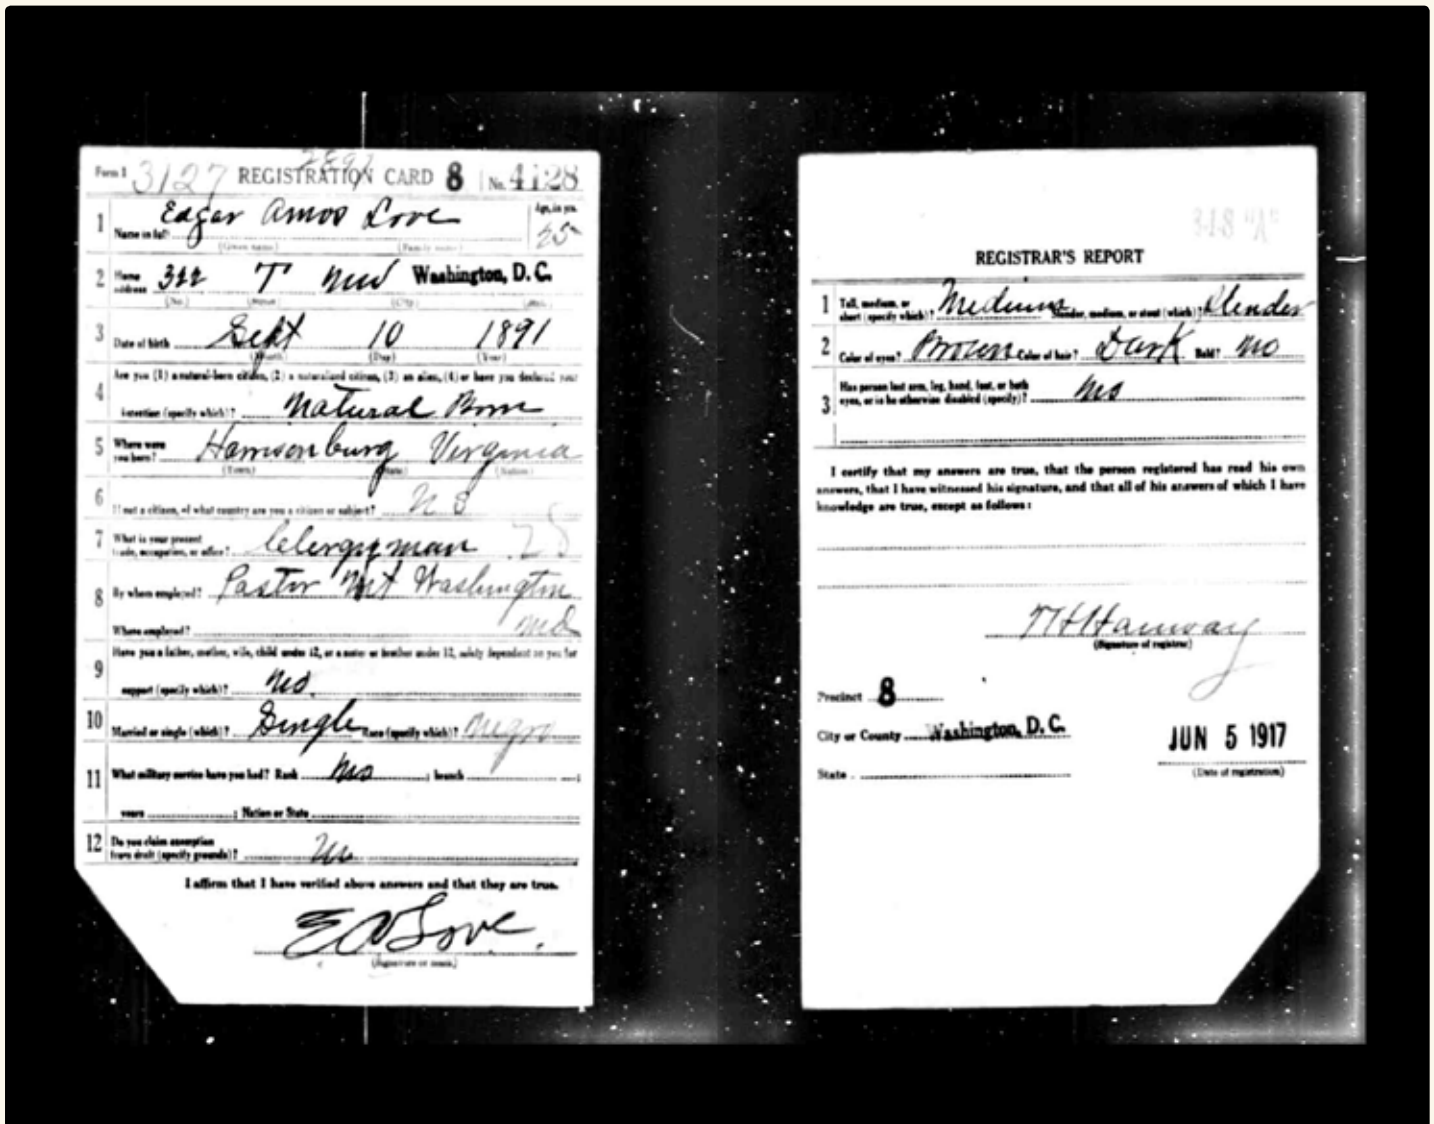 Form 1 3127 REGISTRATION CARD 8 No. 4128
2897
1 Name in full Edgar Amos Love Age, in yrs. 25
(Given name) (Family name)
2 Home address 322 T NW Washington, D. C.
(No.) (Street) (City) (State)
3 Date of birth Sept 10 1891
(Month) (Day) (Year)
Are you (1) a natural-born citizen, (2) a naturalized citizen, (3) an alien, (4) or have you declared your
4 intention (specify which)? Natural Born
5 Where were you born? Harrisonburg Virginia
(Town) (State) (Nation)
6 If not a citizen, of what country are you a citizen or subject? U S
7 What is your present trade, occupation, or office? Clergyman 28
8 By whom employed? Pastor Mt Washington
Where employed? Md
Have you a father, mother, wife, child under 12, or a sister or brother under 12, solely dependent on you for
9 support (specify which)? No.
10 Married or single (which)? Single Race (specify which)? Negro
11 What military service have you had? Rank No ; branch ;
years ; Nation or State
12 Do you claim exemption from draft (specify grounds)? No
I affirm that I have verified above answers and that they are true.
E A Love.
(Signature or mark)
318 "A"
REGISTRAR'S REPORT
1 Tall, medium, or short (specify which)? Medium Slender, medium, or stout (which)? Slender
2 Color of eyes? Brown Color of hair? Dark Bald? No
3 Has person lost arm, leg, hand, foot, or both eyes, or is he otherwise disabled (specify)? No
I certify that my answers are true, that the person registered has read his own
answers, that I have witnessed his signature, and that all of his answers of which I have
knowledge are true, except as follows:
(Signature of registrar)
Precinct 8
City or County Washington, D. C. JUN 5 1917
State (Date of registration)